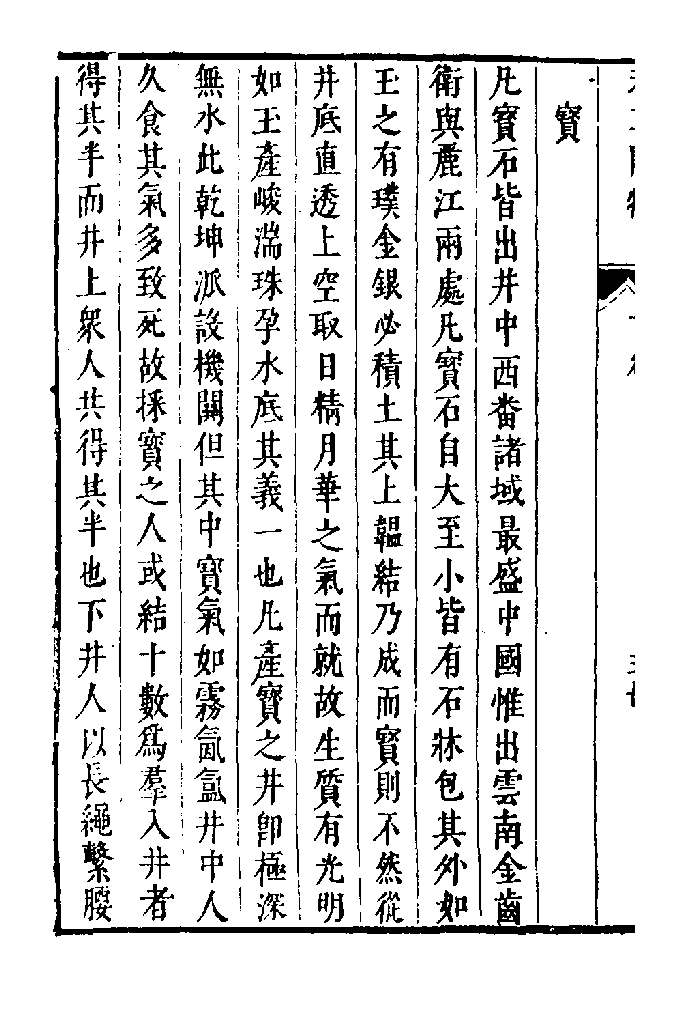 寶
凡寶石皆出井中西番諸域最盛中國惟出雲南金齒
衛與麗江兩處凡寶石自大至小皆有石牀包其外如
玉之有璞金銀必積土其上韞結乃成而寶則不然從
井底直透上空取日精月華之氣而就故生質有光明
如玉產峻湍珠孕水底其義一也凡產寶之井卽極深
無水此乾坤派設機關但其中寶氣如霧氤氳井中人
久食其氣多致死故採寶之人或結十數爲羣入井者
得其半而井上衆人共得其半也下井人以長繩繫腰